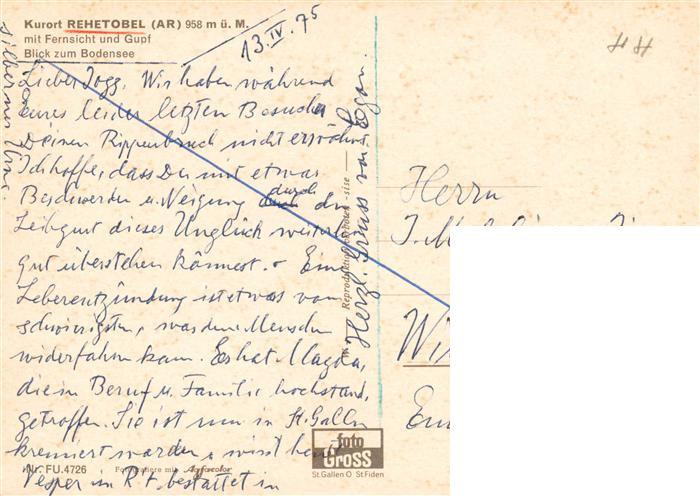 Kurort REHETOBEL (AR) 958 m ü. M.
mit Fernsicht und Gupf
Blick zum Bodensee
13. IV. 75
Lieber Jogg, Wir haben während
eures leider letzten Besuches
Deinen Rippenbruch nicht erwähnt.
Ich hoffe, dass Du mit etwas
Beschwerden u. Neigung durch
Leibgurt dieses Unglück weiterhin
gut überstehen kannst. Eine
Leberentzündung ist etwas vom
schwierigsten, was dem Menschen
widerfahren kann. Es hat Magda,
die in Beruf u. Familie hochstand,
getroffen. Sie ist nun in St. Gallen
kremiert worden, wird heute
Vesper in R't. bestattet in
silberner Urne.
Herzl. Gruss von Eggn.
Reproduktion verboten - sise
Herrn
J.
Nr. FU.4726
Fotografiere mit Agfacolor
foto
GROSS
St. Gallen O St. Fiden